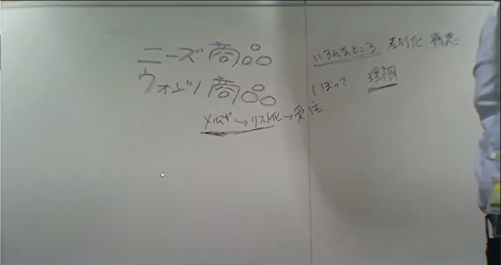 ニーズ商品
いろんなところ 差別化
ウォンツ商品
しぼって 理解
メルマガ→リスト化→受注